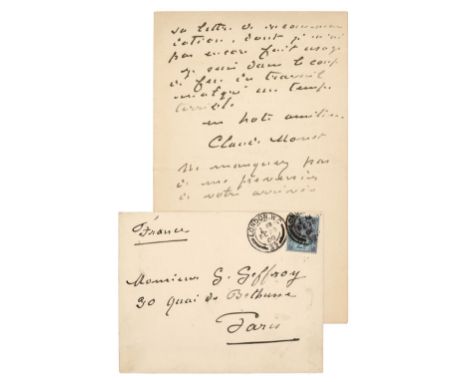 sa lettre de recomman
dation, dont je n'ai
pas encore fait usage
je suis dans le coup
de feu du travail
malgré un temps
terrible
en hate amitiés
Claude Monet
Ne manquez pas
de me prévenir
de votre arrivée
France
LONDON. W
Monsieur G. Geffroy
30 Quai de Bethune
Paris